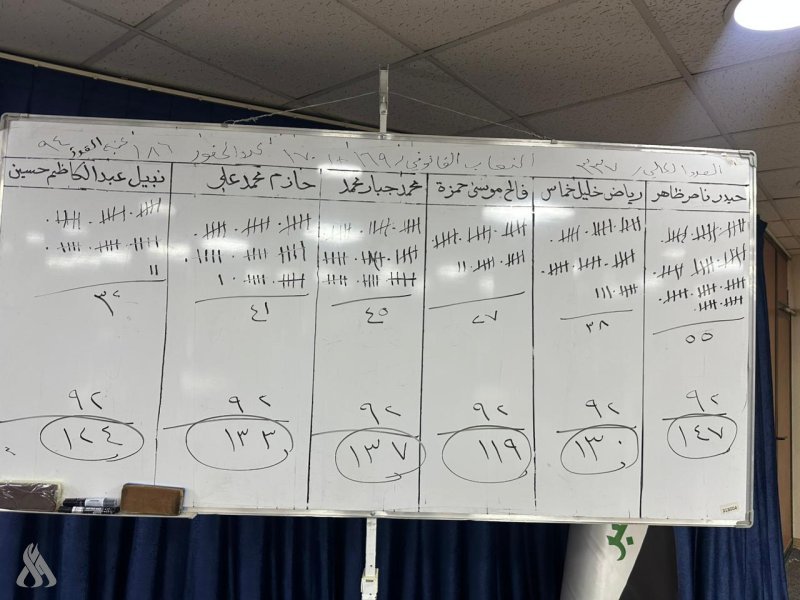 العدد الكلي / ٣٣٧ النصاب القانوني / ١٦٩ + ١ ١٧٠ عدد الحضور ١٨٦ ٩٤
حيدر ناصر ظاهر
٥٥
٩٢
١٤٧
رياض خليل خماس
٣٨
٩٢
١٣٠
فالح موسى حمزة
٢٧
٩٢
١١٩
محمد جبار محمد
٤٥
٩٢
١٣٧
حازم محمد علي
٤١
٩٢
١٣٣
نبيل عبد الكاظم حسين
٣٢
٩٢
١٢٤